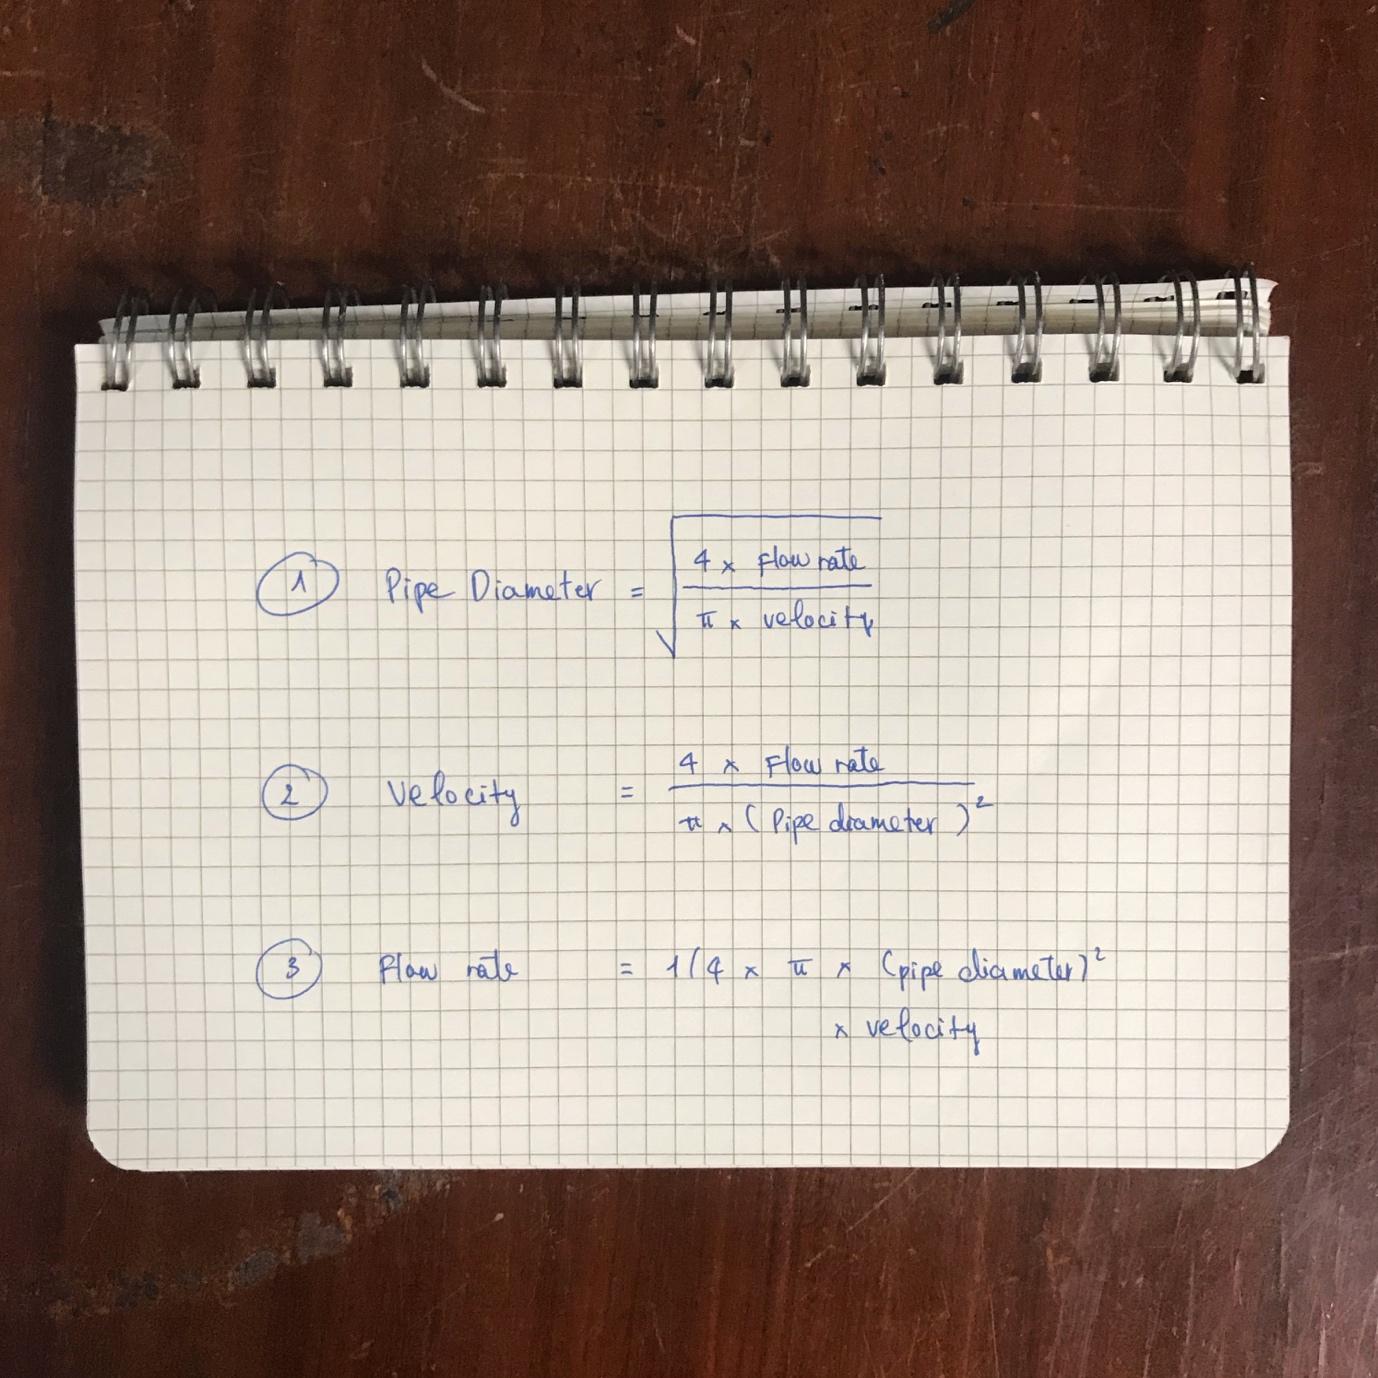 1 Pipe Diameter = √ 4 × Flow rate / π × velocity
2 Velocity = 4 × Flow rate / π × (Pipe diameter)²
3 Flow rate = 1/4 × π × (pipe diameter)²
× velocity